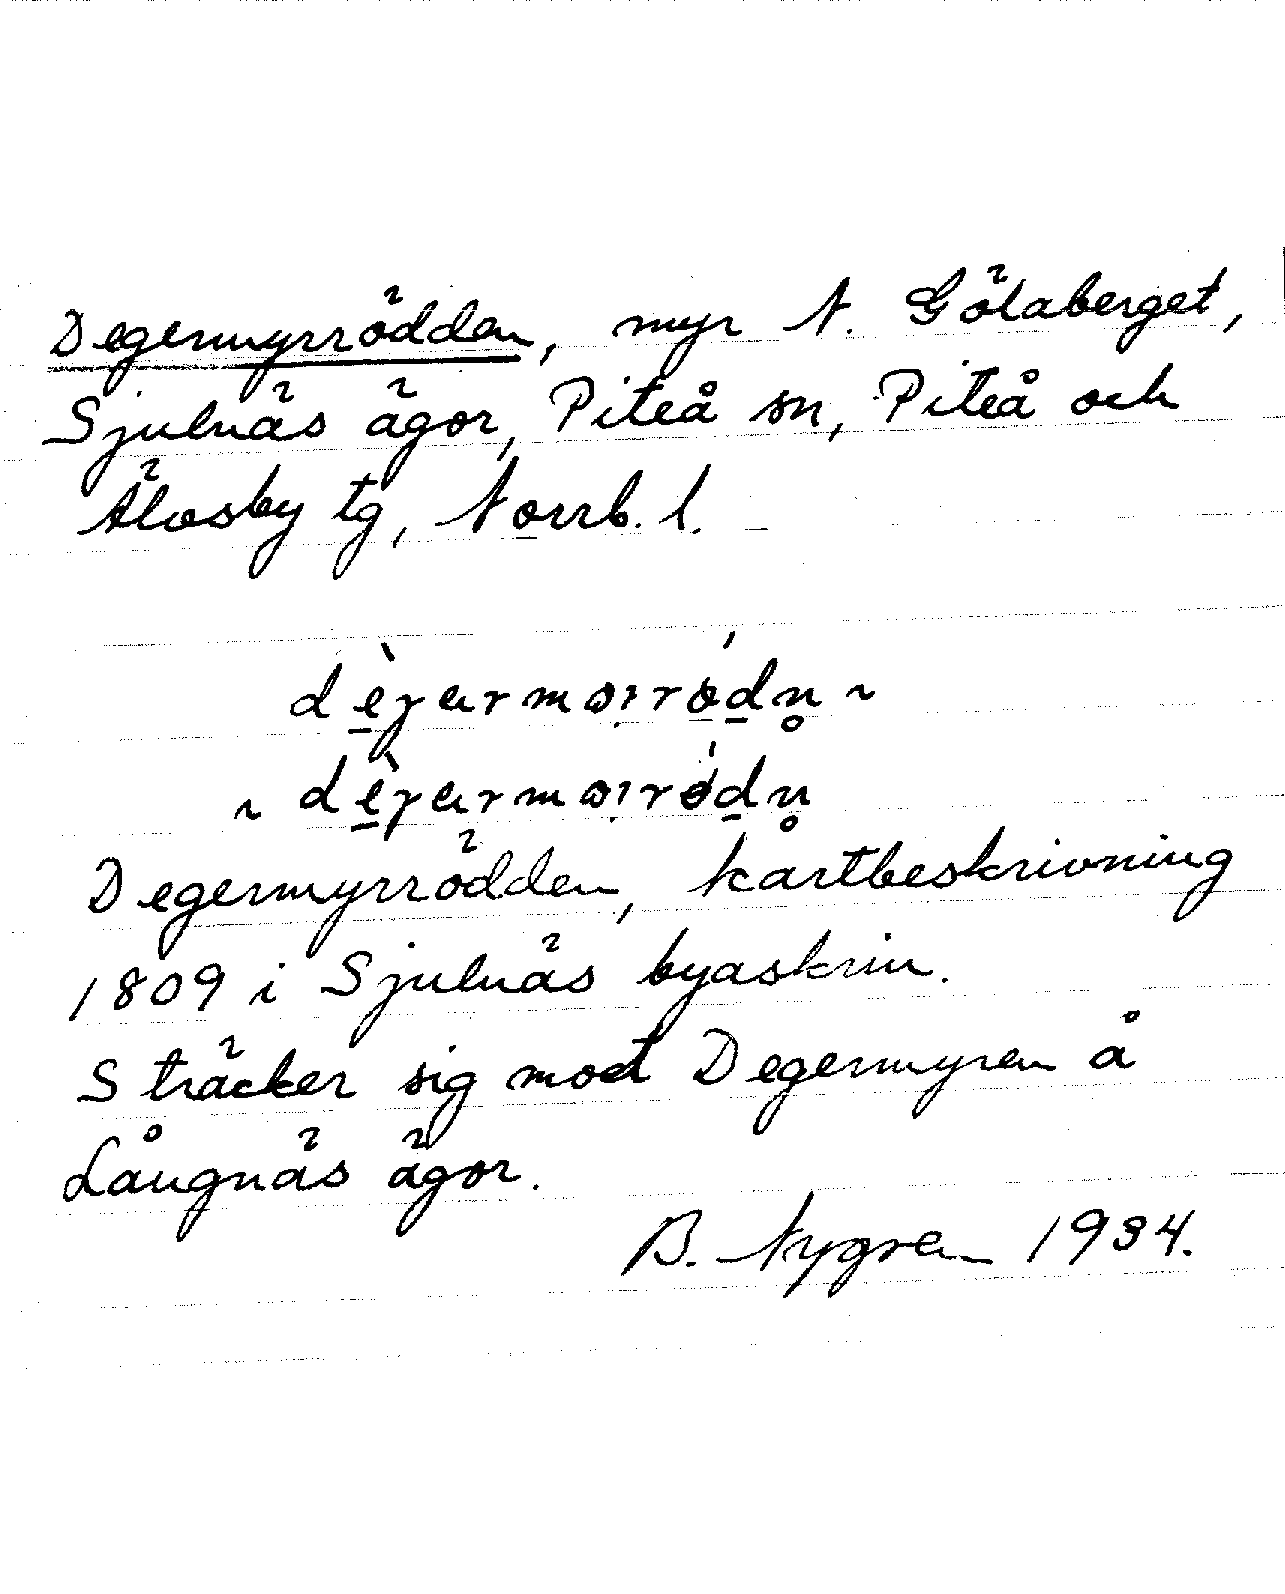 Degermyrrödden, myr N. Gölaberget,
Sjulnäs ägor, Piteå sn, Piteå och
Älvsby tg, Norrb. l.
Degermyrrödden, kartbeskrivning
1809 i Sjulnäs byaskrin.
Sträcker sig mot Degermyren å
Långnäs ägor.
B. Nygren 1934.